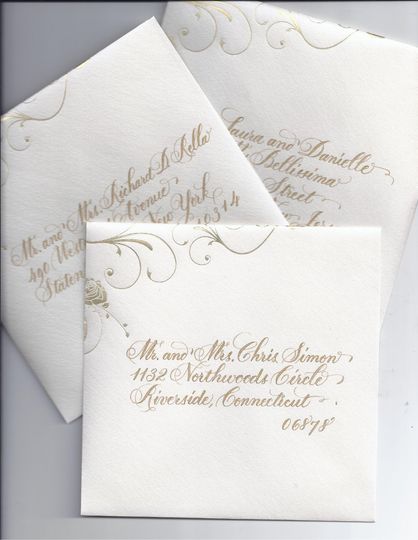 Mr. and Mrs. Richard D. Rella
490 West Avenue
Staten New York
10314
Laura and Danielle
Bellissima
Street
Jer
Mr. and Mrs. Chris Simon
1132 Northwoods Circle
Riverside, Connecticut
06878